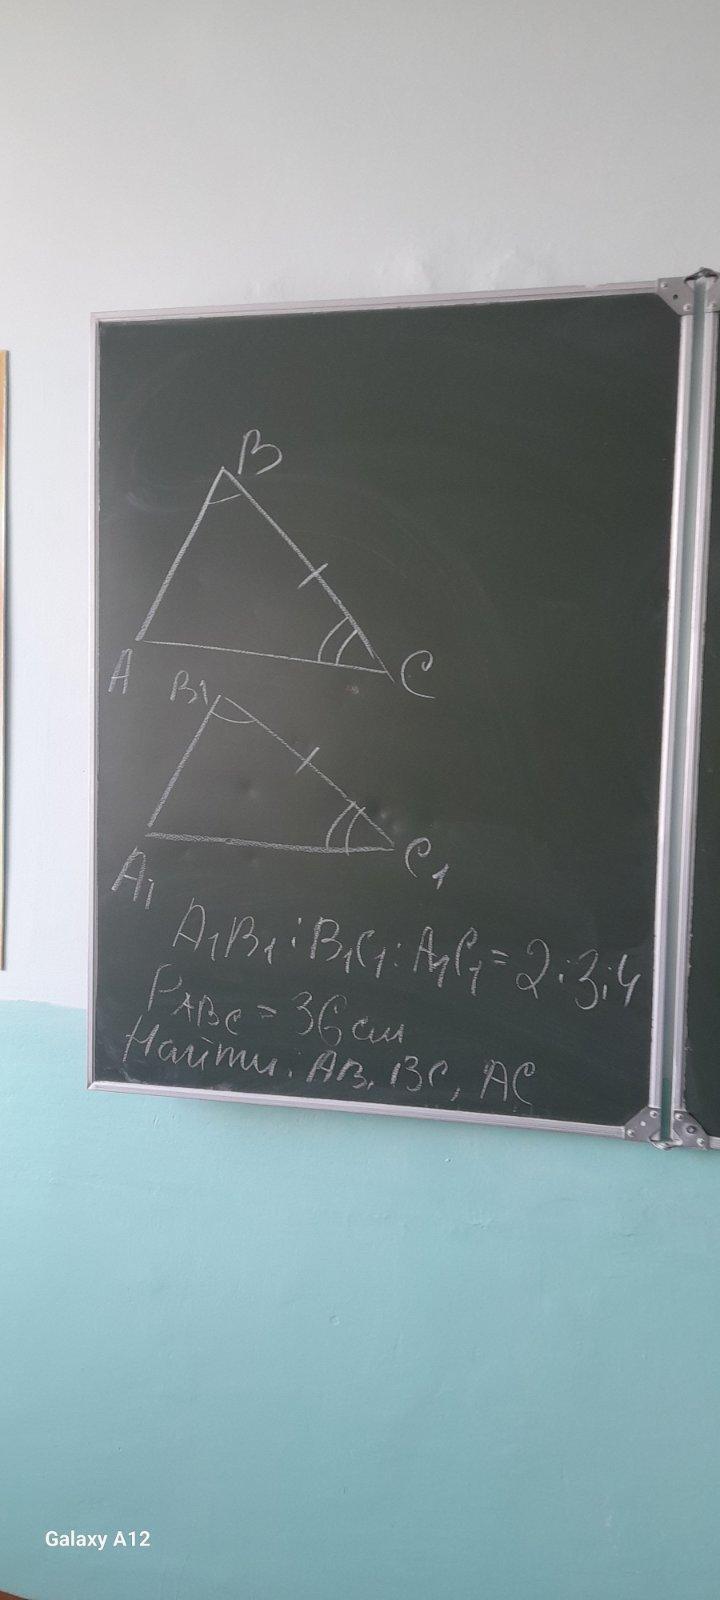 B
A
C
B₁
A₁
C₁
A₁B₁ : B₁C₁ : A₁C₁ = 2:3:4
P_ABC = 36 см
Найти: AB, BC, AC
Galaxy A12